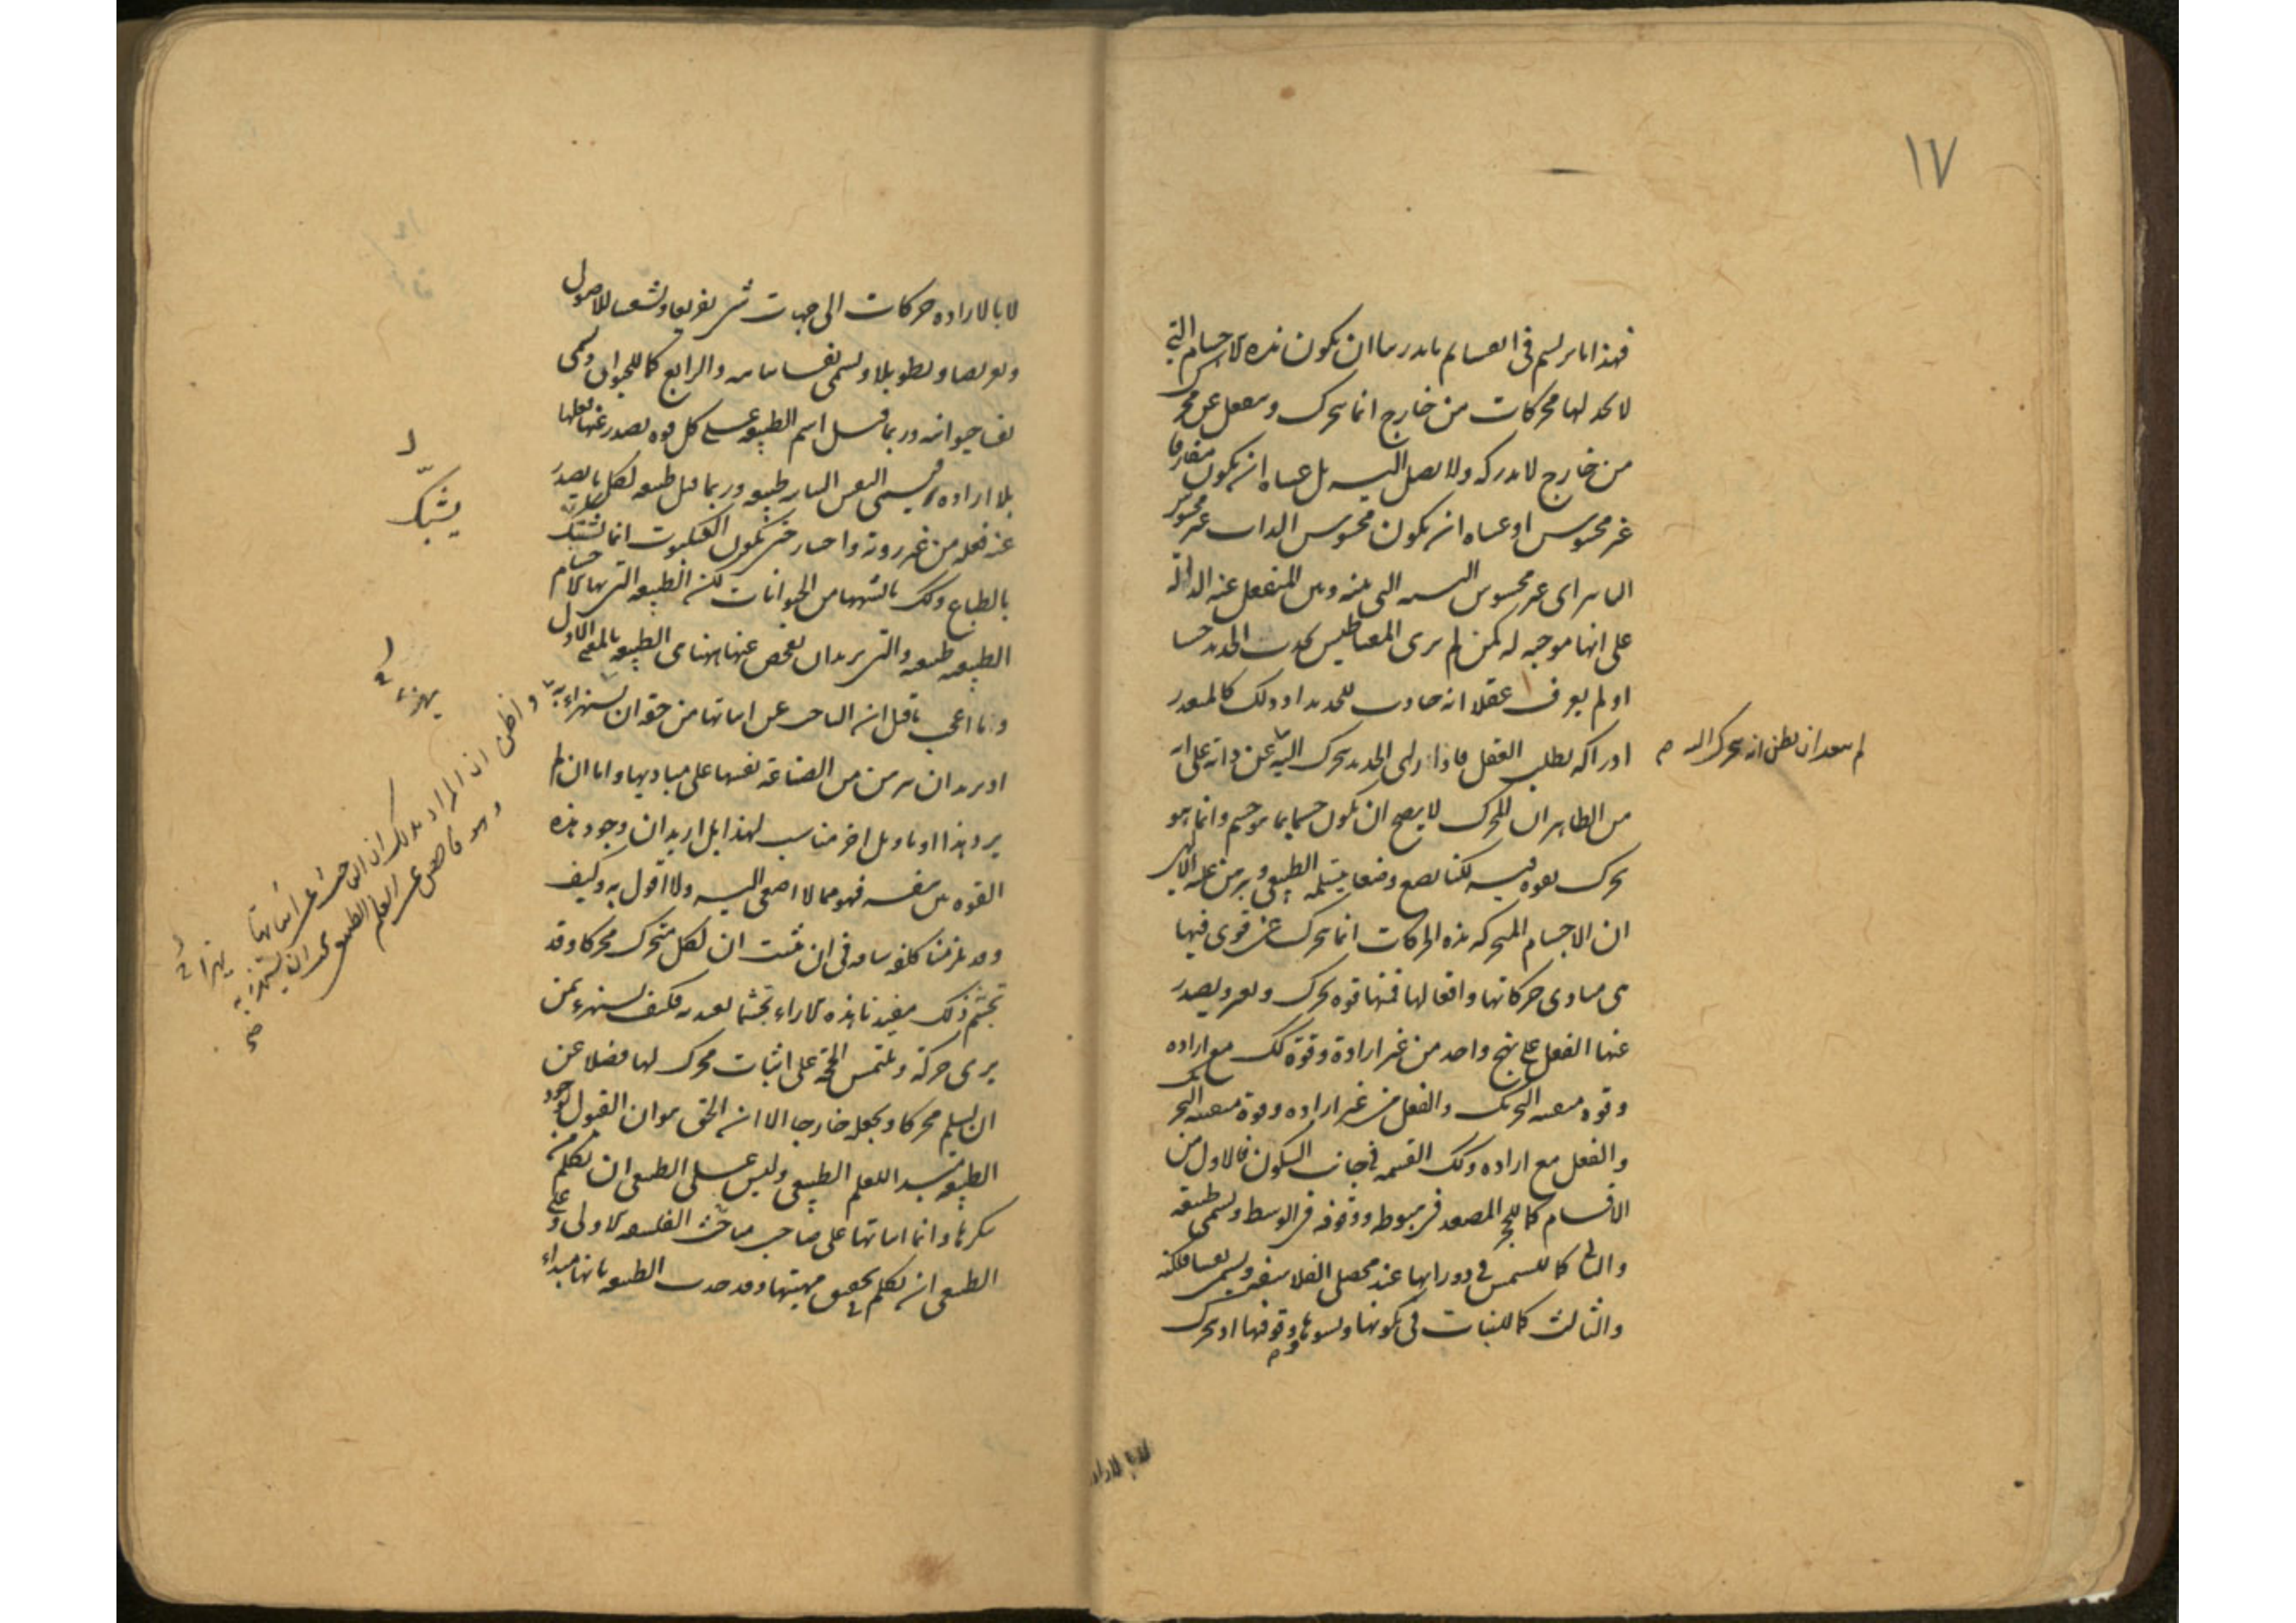 ١٧
فهذا ما يرتسم في انفسنا ثم بايدينا ان يكون هذه الاجسام التي
لا نجد لها محركات من خارج انما يتحرك وينفعل عن محرك
من خارج لا ندركه ولا نصل اليه بل عساه ان يكون مفارقا
غير محسوس او عساه ان يكون محسوس الذات غير محسوس
التاثير اي غير محسوس النسبة التي بينه وبين المنفعل عنه الدالة
على انها موجبة له كمن لم ير المغناطيس يجذب الحديد حسا
او لم يعرف عقلا انه جاذب للحديد اذ ذلك كالمتعذر
ادراكه بطلب العقل فاذا راى الحديد يتحرك اليه عن ذاته على انه
لم يبعد ان يظن انه يتحرك اليه
من الظاهر ان المحرك لا يصح ان يكون جسما بما هو جسم وانما هو
يحرك بقوة فيه لكنا نضع وضعا يتسلمه الطبيعي ويبرهن عليه الالهي
ان الاجسام المتحركة هذه الحركات انما يتحرك عن قوى فيها
هي مبادي حركاتها وافعالها فمنها قوة تحرك وتغير ويصدر
عنها الفعل على نهج واحد من غير ارادة وقوة كك مع ارادة
وقوة متفننة التحريك والفعل من غير ارادة وقوة متفننة التحريك
والفعل مع ارادة وكك القسمة في جانب السكون فالاول من
الاقسام كما للحجر المصعد في هبوطه ووقوفه في الوسط ويسمى طبيعة
والثاني كما للشمس في دورانها عند محصلي الفلاسفة ويسمى نفسا فلكية
والثالث كما للنبات في تكونها ونشوها ووقوفها اذ تحرك
لا بالاراده
لا بالاراده حركات الى جهات شتى تفريعا وتشعيبا للاصول
وتعريضا وتطويلا ويسمى نفسا نباتية والرابع كما للحيوان ويسمى
نفسا حيوانية وربما قيل اسم الطبيعة على كل قوة يصدر عنها فعلها
بلا ارادة فيسمى النفس النباتية طبيعة وربما قيل طبيعة لكل ما يصدر
عنه فعله من غير روية واختيار حتى يكون العنكبوت انما يشبك
يشبّك
بالطباع وكك ما اشبهها من الحيوانات لكن الطبيعة التي بها الاجسام
الطبيعية طبيعية والتي نريد ان نفحص عنها ههنا هي الطبيعة بالمعنى الاول
وما اعجب ما قيل ان الباحث عن اثباتها من حقه ان يستهزاء به
واظن ان المراد بذلك ان الباحث عن اثباتها
وهو فاحص عن العلم الطبيعي يجب ان يستهزا به
او يريد ان يبرهن من الصناعة نفسها على مباديها واما ان لم
يرد هذا او تاويل اخر مناسب لهذا بل اريد ان وجود هذه
القوة بين بنفسه فهو مما لا اصغي اليه ولا اقول به وكيف
وقد يلزمنا كلفة شاقة في ان نثبت ان لكل متحرك محركا وقد
تجشم ذلك مفيدنا هذه الاراء تجشما يعتد به فكيف يستهزء بمن
يرى حركة ويلتمس الحجة على اثبات محرك لها فضلا عن
ان يسلم محركا ويجعله خارجا الا ان الحق هو ان القول بوجود
الطبيعة مبدا للعلم الطبيعي وليس على الطبيعي ان يكلم من
ينكرها وانما اثباتها على صاحب مباحث الفلسفة الاولى وعلى
الطبيعي ان يكلم تحقيق مهيتها وقد حدت الطبيعة بانها مبداء